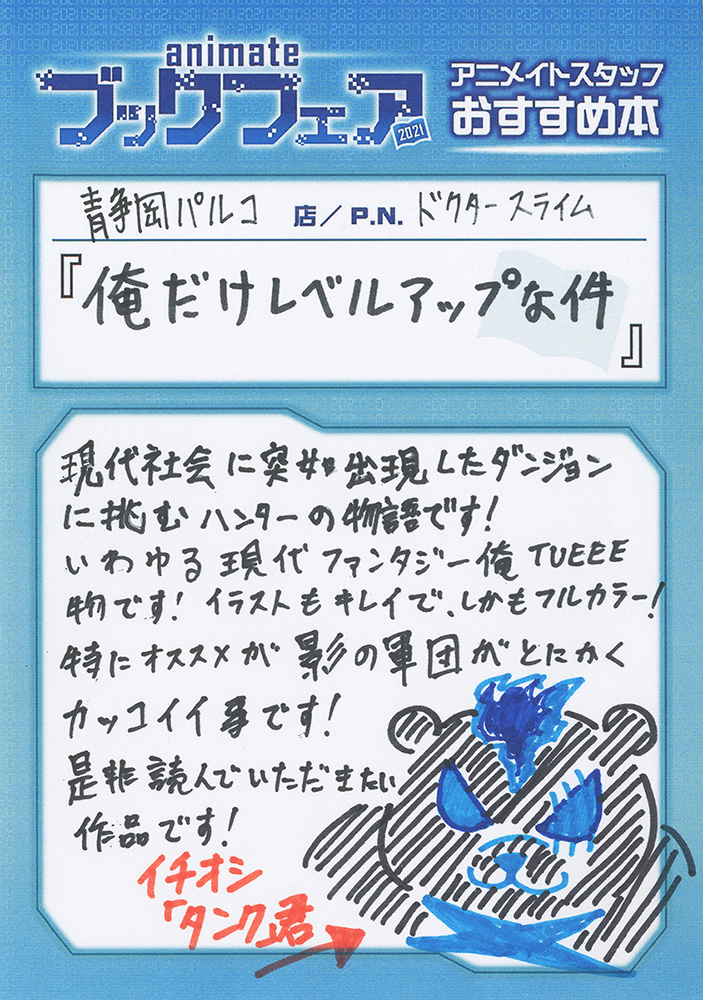 animate
ブックフェア
2021
アニメイトスタッフ
おすすめ本
静岡パルコ 店/P.N. ドクタースライム
『俺だけレベルアップな件』
現代社会に突如出現したダンジョン
に挑むハンターの物語です!
いわゆる現代ファンタジー俺TUEEE
物です!イラストもキレイで、しかもフルカラー!
特にオススメが影の軍団がとにかく
カッコイイ事です!
是非読んでいただきたい
作品です!
イチオシ
「タンク」君